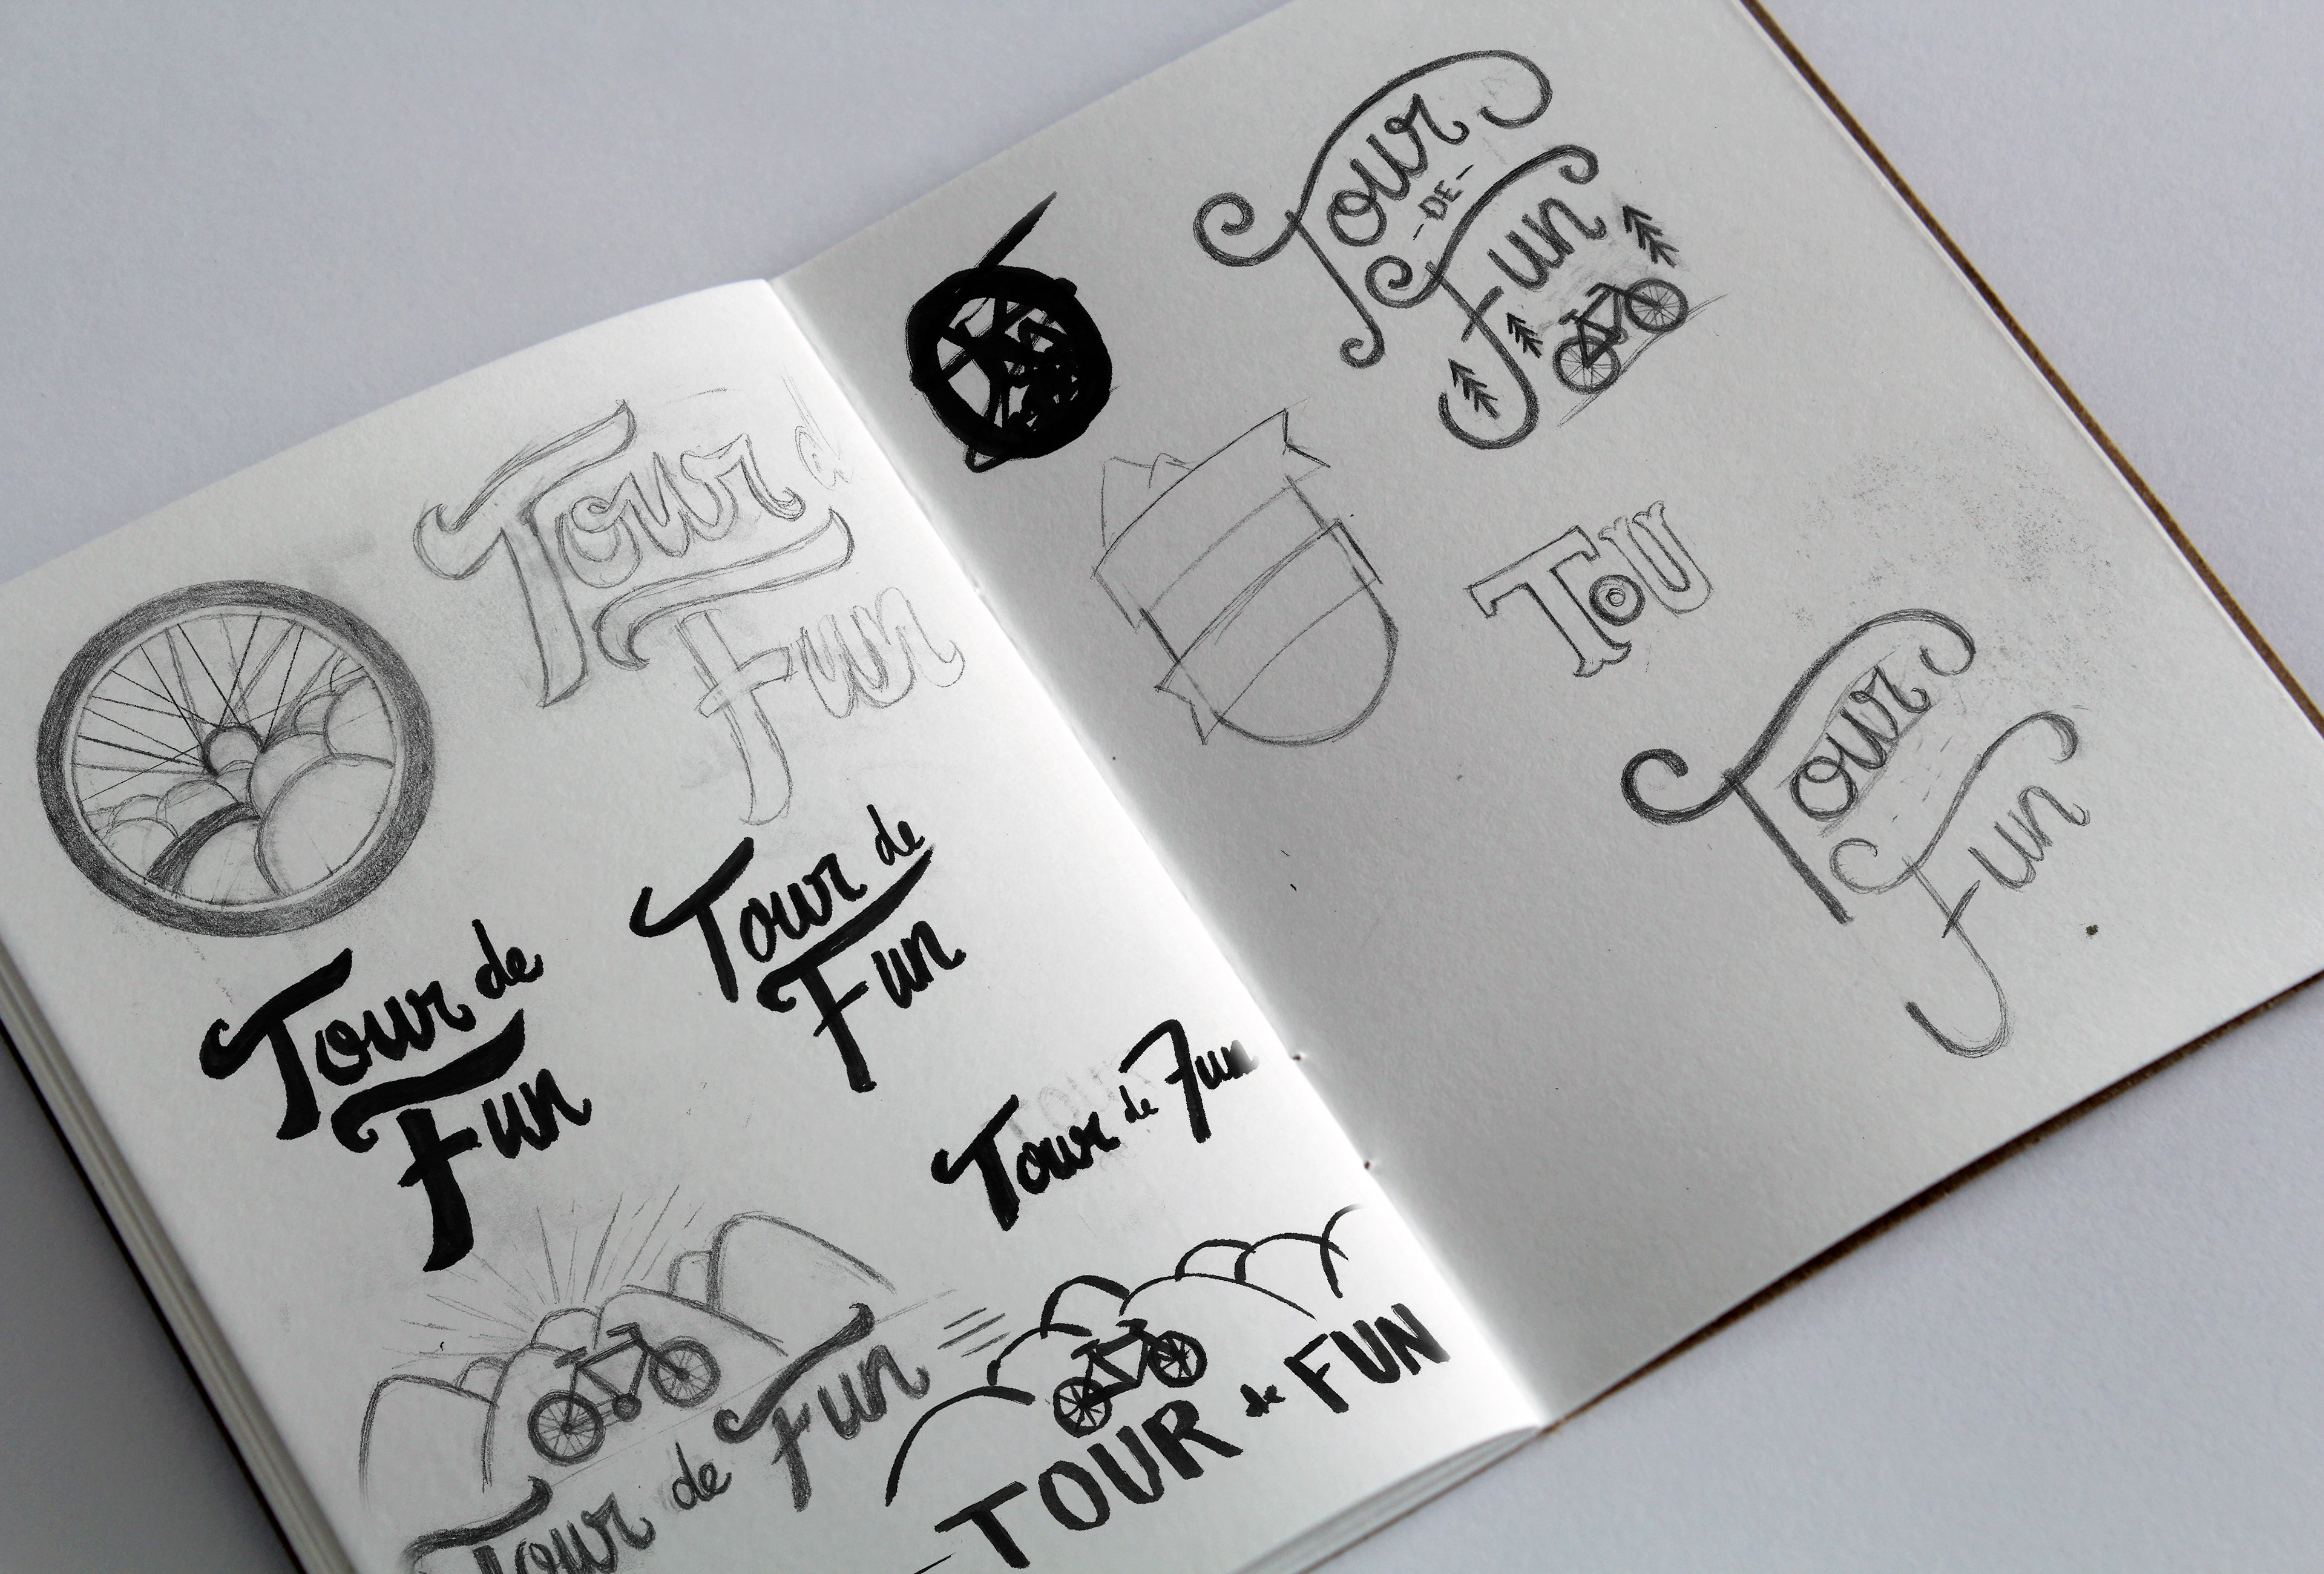 Tour d
Fun
Tour de
Fun
Tour de
Fun
Tour de Fun
Tour de Fun
TOUR de FUN
Tour
-DE-
Fun
TOU
Tour
Fun